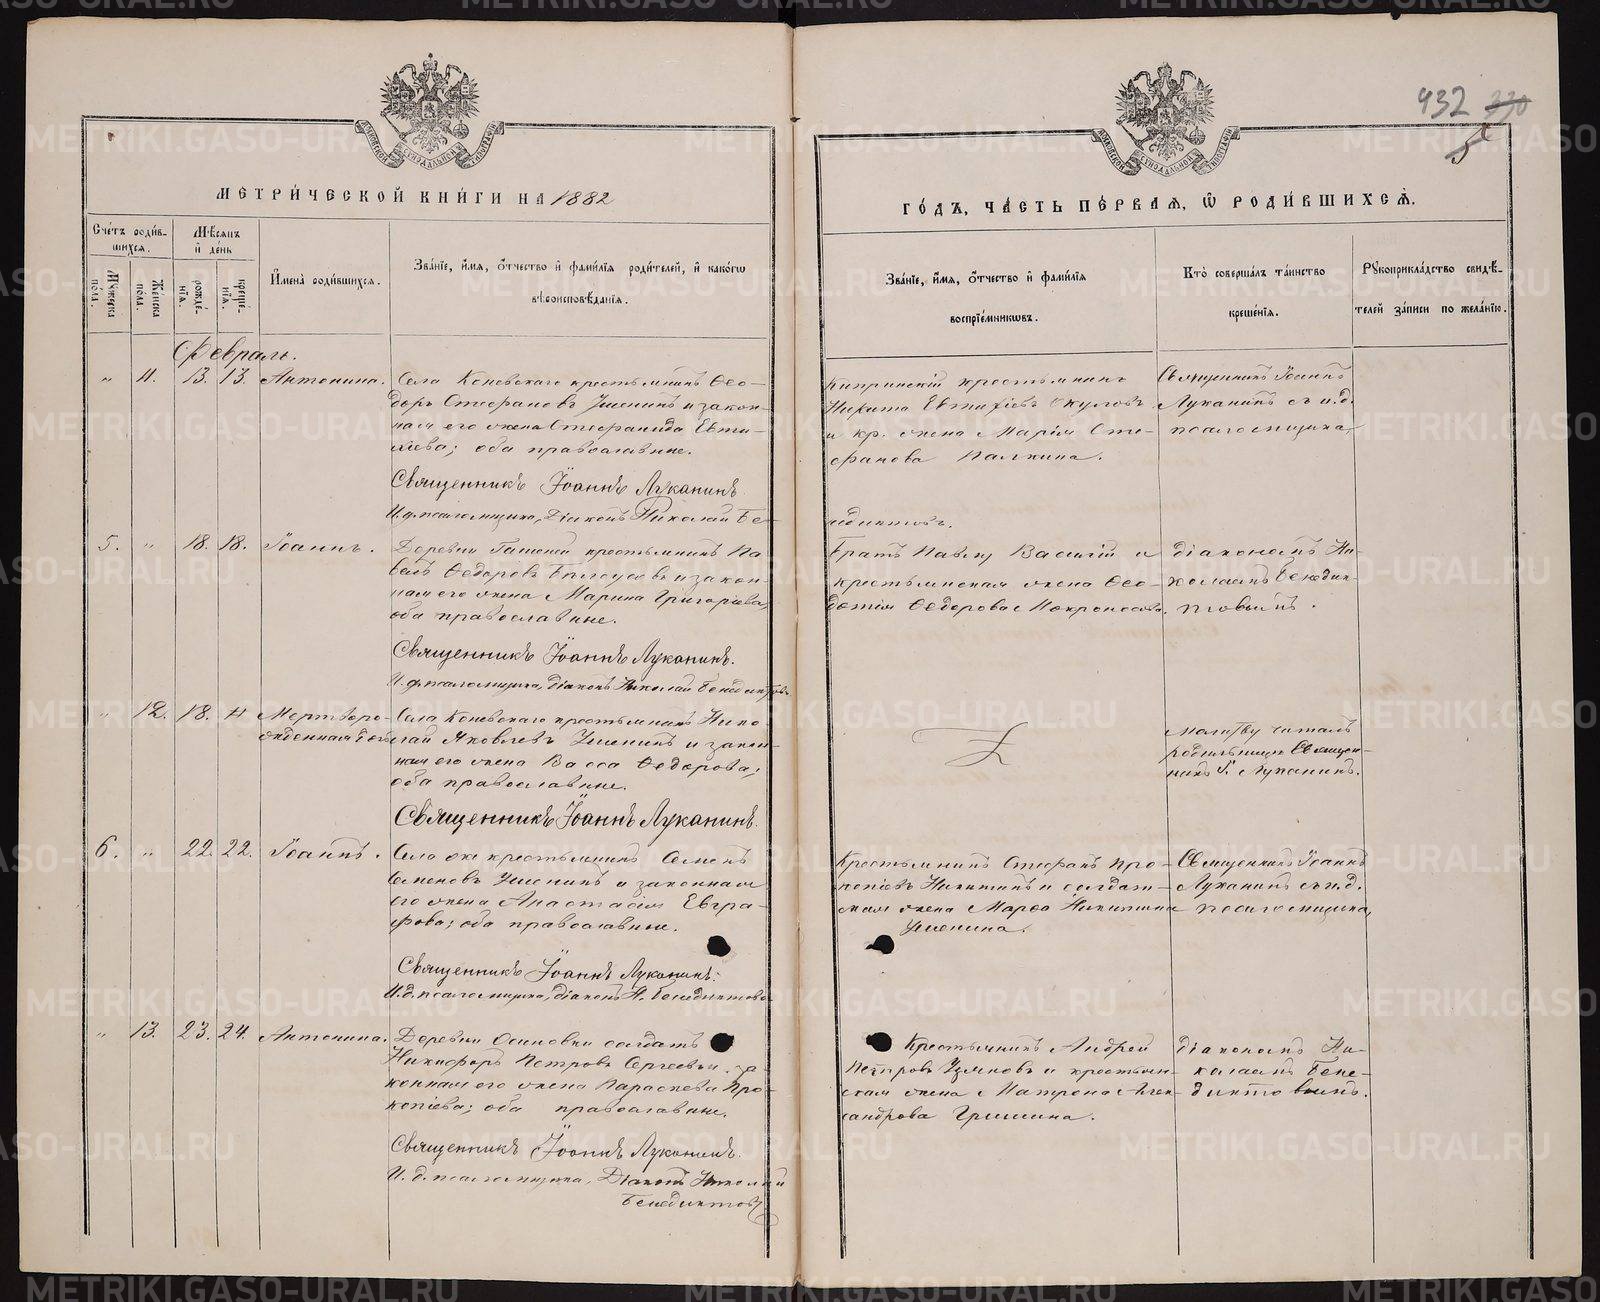 МЕТРИЧЕСКОЙ КНИГИ НА 1882
Счетъ родив-
шихся.
Мужеска
пола.
Женска
пола.
Мѣсяцъ
и день
рожде-
нія.
креще-
нія.
Имена родившихся.
Званіе, имя, отчество и фамилія родителей, и какого
вѣроисповѣданія.
Февраль.
" 11. 13. 13. Антонина.
Села Коневскаго крестьянинъ Ѳео-
доръ Стефановъ Ушенинъ и закон-
ная его жена Стефанида Евти-
хіева; оба православные.
Священникъ Іоаннъ Луканинъ.
И. д. псаломщика, Діаконъ Николай Бе-
5. " 18. 18. Іоаннъ.
Деревни Гашеней крестьянинъ Па-
велъ Ѳедоровъ Билоусовъ и закон-
ная его жена Марина Григоріева,
оба православные.
Священникъ Іоаннъ Луканинъ.
И. д. псаломщика, діаконъ Николай Бенедиктовъ
" 12. 18. Мертворо-
жденная
Села Коневскаго крестьянинъ Нико-
лай Яковлевъ Ушенинъ и закон-
ная его жена Васса Ѳедорова;
оба православные.
Священникъ Іоаннъ Луканинъ.
6. " 22. 22. Іоаннъ.
Села же крестьянинъ Семенъ
Семеновъ Ушенинъ и законная
его жена Анастасія Евгра-
фова; оба православные.
Священникъ Іоаннъ Луканинъ.
И. д. псаломщика, діаконъ Н. Бенедиктовъ
" 13. 23. 24. Антонина.
Деревни Осиновки солдатъ
Никифоръ Петровъ Сергеевъ и за-
конная его жена Параскева Про-
копіева; оба православные.
Священникъ Іоаннъ Луканинъ.
И. д. псаломщика, Діаконъ Николай
Бенедиктовъ
432 330
5
ГОДЪ, ЧАСТЬ ПЕРВАЯ, Ѡ РОДИВШИХСЯ.
Званіе, имя, отчество и фамилія
воспріемниковъ.
Кто совершалъ таинство
крещенія.
Рукоприкладство свидѣ-
телей записи по желанію.
Кипринскій крестьянинъ
Никита Евтихіевъ Окуловъ
и кр. жена Марія Сте-
фанова Палкина.
Священникъ Іоаннъ
Луканинъ съ и. д.
псаломщика,
недиктовъ.
Братъ Павлу Василій и
крестьянская жена Ѳео-
дотія Ѳедорова Мокроносова.
діакономъ Ни-
колаемъ Бенедик-
товымъ.
молитву читалъ
родильницѣ Священ-
никъ І. Луканинъ.
Крестьянинъ Стефанъ Про-
копіевъ Никитинъ и солдат-
ская жена Марѳа Никитина
Ушенина.
Священникъ Іоаннъ
Луканинъ съ и. д.
псаломщика,
Крестьянинъ Андрей
Петровъ Узяновъ и крестьян-
ская жена Матрона Алек-
сандрова Гришина.
діакономъ Ни-
колаемъ Бене-
диктовымъ.
METRIKI.GASO-URAL.RU